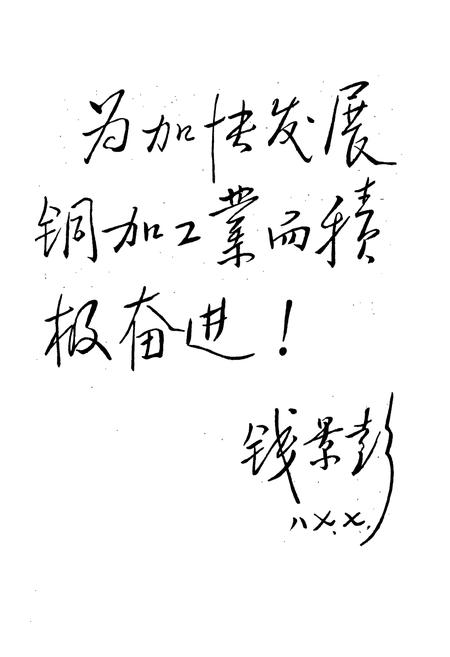 为加快发展
铜加工業而積
极奋进！
钱景彭
八乂.乂.